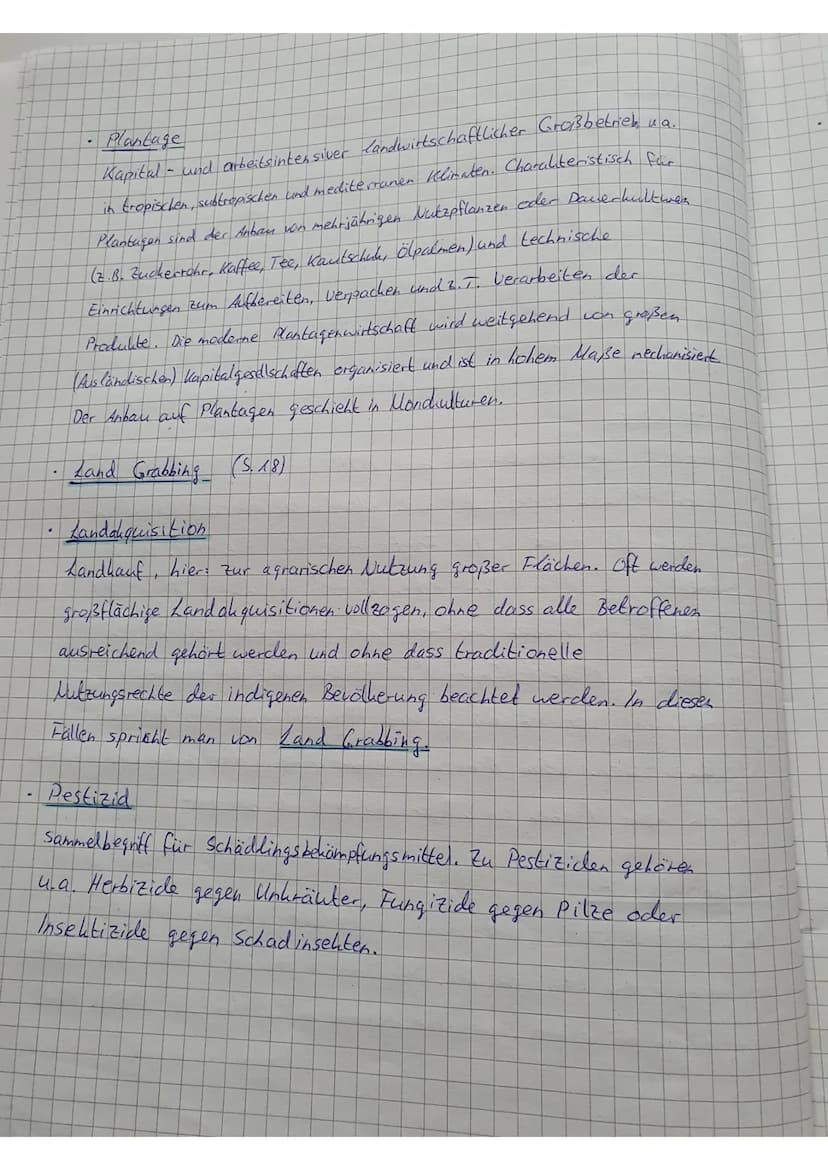 · Plantage
Kapital- und arbeitsintensiver landwirtschaftlicher Großbetrieb u.a.
in tropischen, subtropischen und mediterranen Klimaten. Charakteristisch für
Plantagen sind der Anbau von mehrjährigen Nutzpflanzen oder Dauerkulturen
(z.B. Zuckerrohr, Kaffee, Tee, Kautschuk, Ölpalmen) und technische
Einrichtungen zum Aufbereiten, Verpacken und z.T. Verarbeiten der
Produkte. Die moderne Plantagenwirtschaft wird weitgehend von großen
(Ausländischen) Kapitalgesellschaften organisiert und ist in hohem Maße mechanisiert
Der Anbau auf Plantagen geschieht in Monokulturen.
· Land Grabbing (S. 18)
· Landakquisition
Landkauf, hier: zur agrarischen Nutzung großer Flächen. Oft werden
großflächige Landakquisitionen vollzogen, ohne dass alle Betroffenen
ausreichend gehört werden und ohne dass traditionelle
Nutzungsrechte der indigenen Bevölkerung beachtet werden. In diesen
Fällen spricht man von Land Grabbing.
· Pestizid
Sammelbegriff für Schädlingsbekämpfungsmittel. Zu Pestiziden gehören
u.a. Herbizide gegen Unkräuter, Fungizide gegen Pilze oder
Insektizide gegen Schadinsekten.